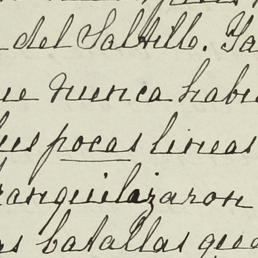 del Saltillo. Ya
nunca habi
pocas lineas
tranquilizaron
batallas que